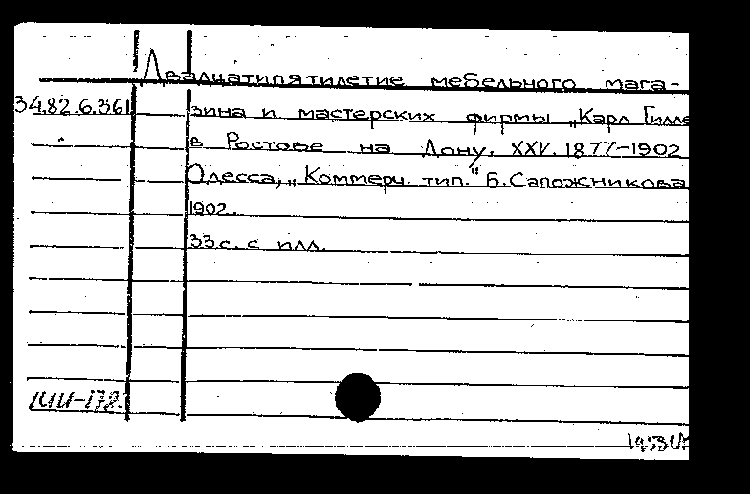 Двадцатипятилетие мебельного мага-
34.82.6.361 зина и мастерских фирмы „Карл Гилле
в Ростове на Дону. XXV. 1877-1902
Одесса, „Коммерч. тип." Б. Сапожникова
1902.
33 с. с илл.